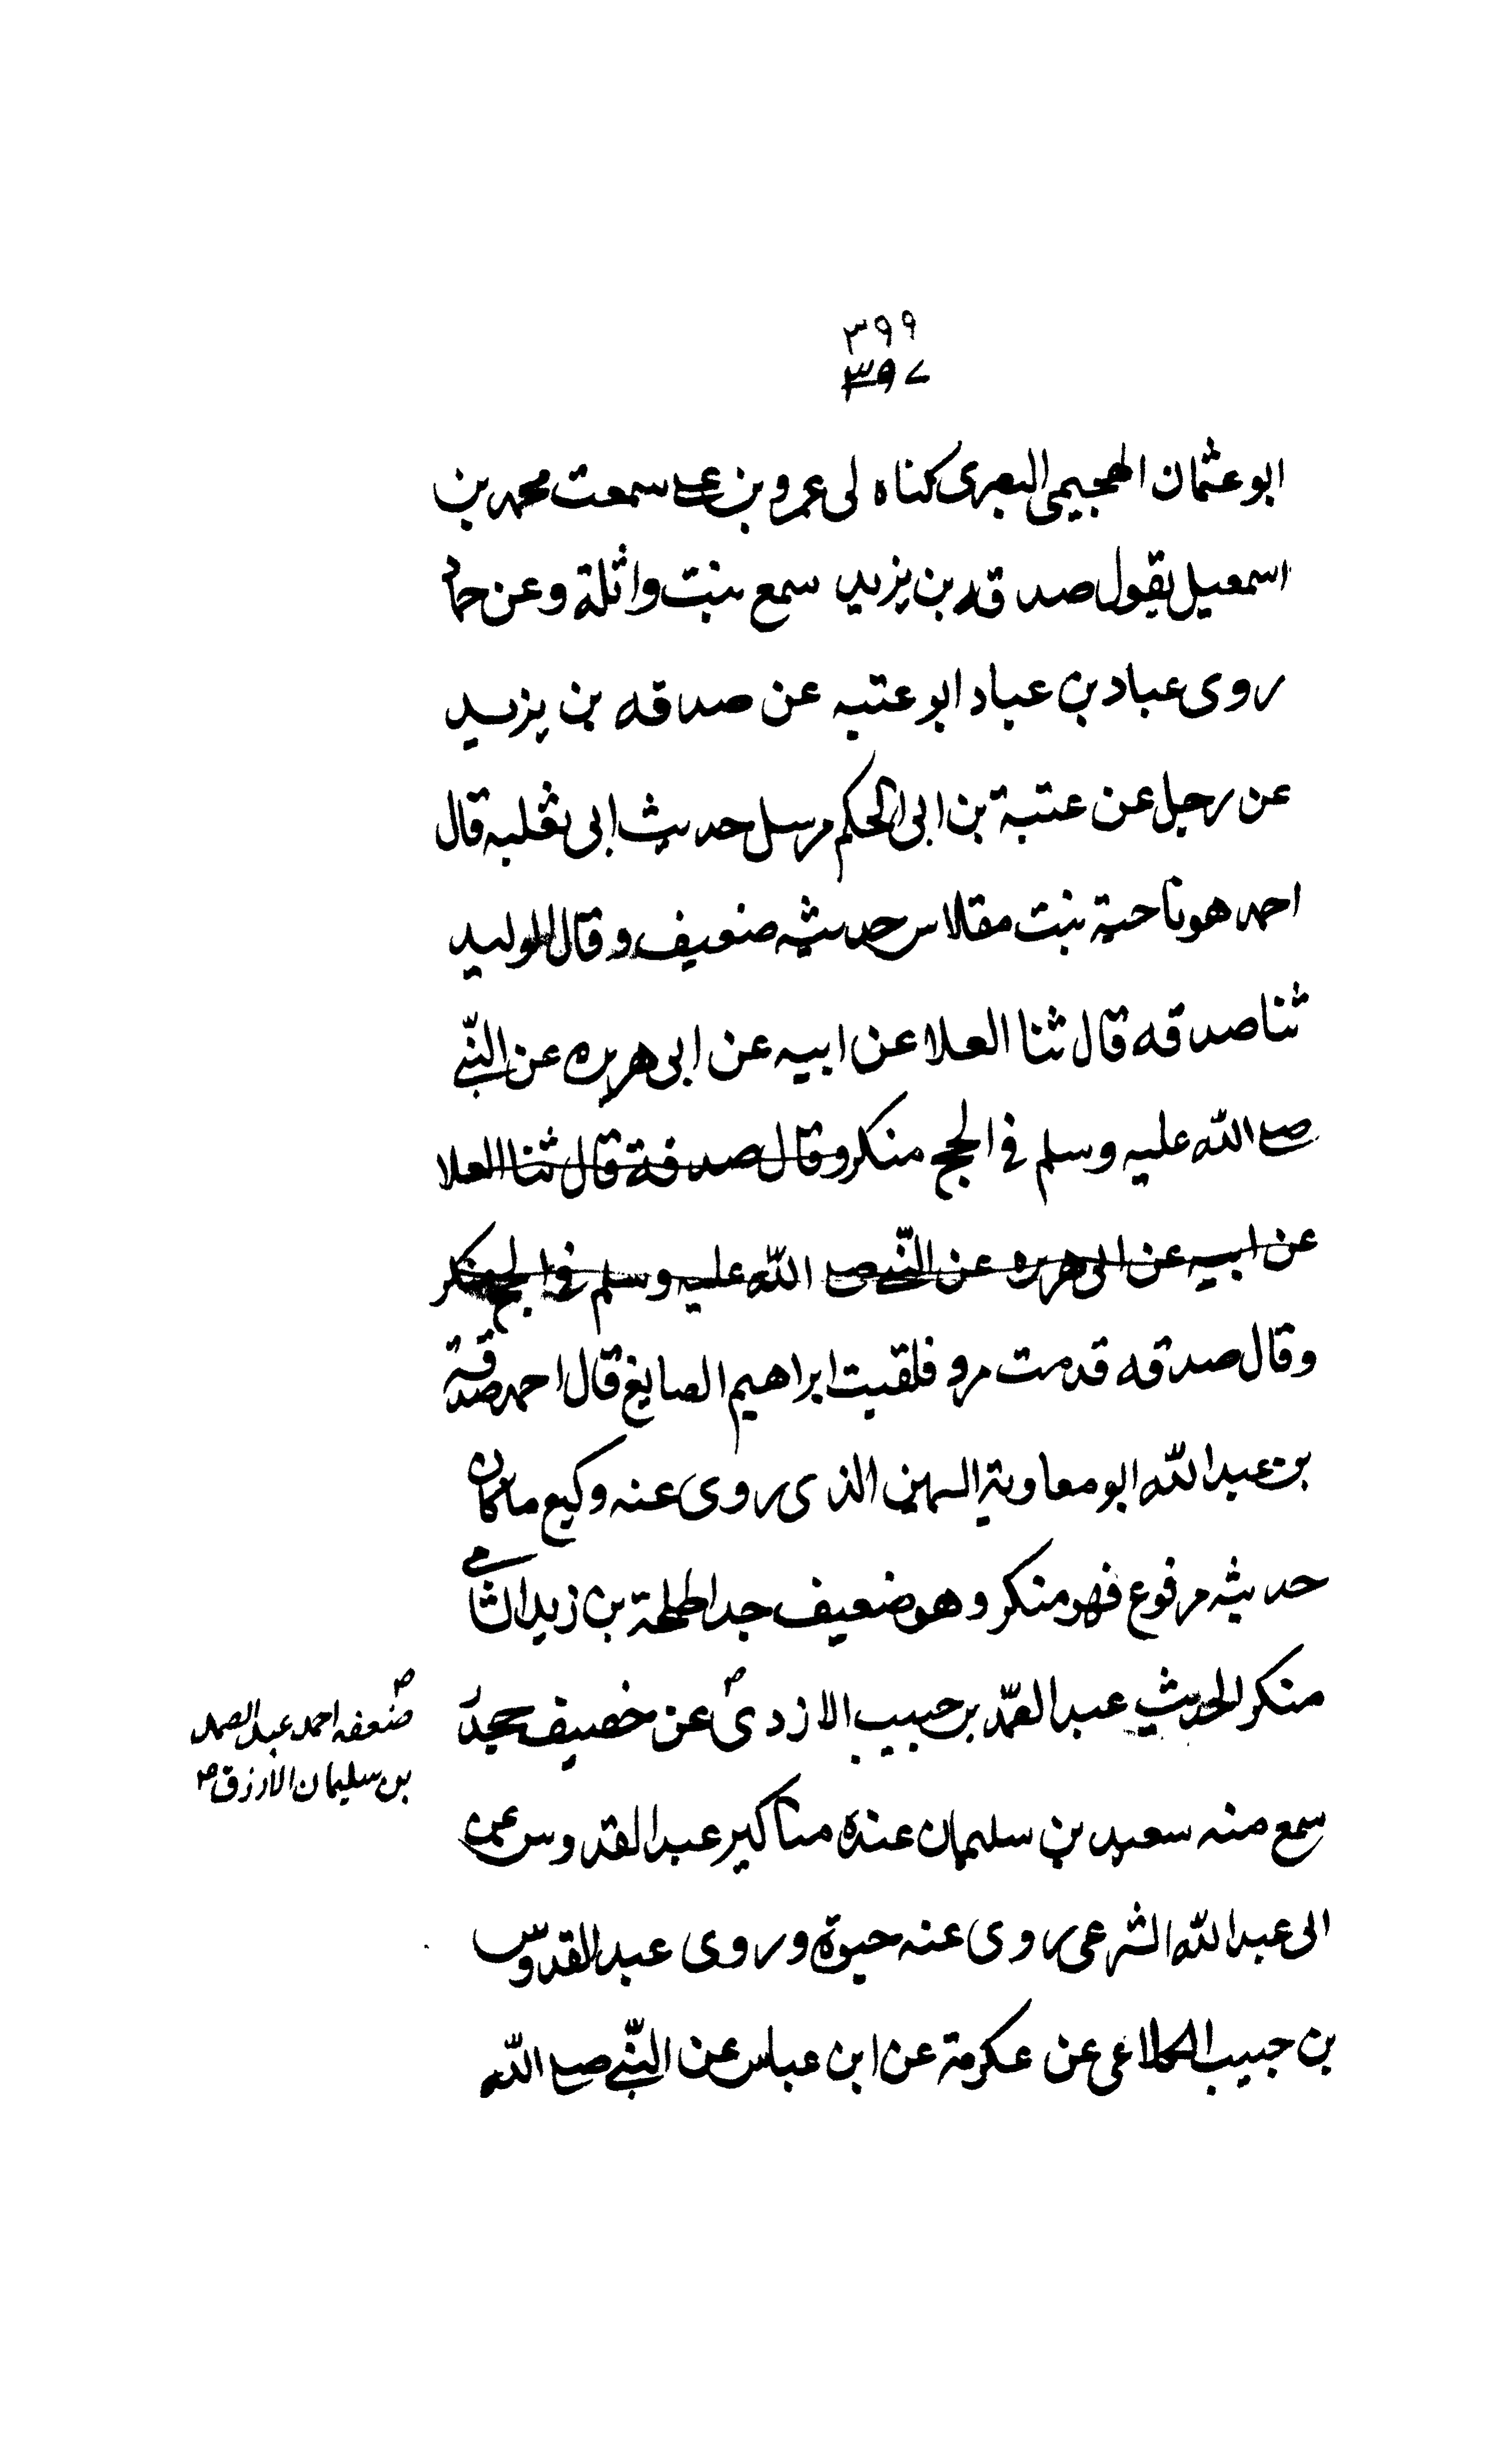 ٣٩٩
٣٩٧
ابو عثمان الهجيمى البصرى كناه لى عمرو بن على سمعت محمد بن
اسمعيل يقول صدقه بن يزيد سمع بنت واثلة وعن حماد
روى عباد بن عباد ابو عتبه عن صدقه بن يزيد
عن رجل عن عتبة بن ابى الحكم مرسل حديث ابى ثعلبه قال
احمد هو ناحية بنت مقلاس حديثه ضعيف وقال الوليد
ثنا صدقه قال ثنا العلا عن ابيه عن ابى هريره عن النبى
صلى الله عليه وسلم فى الحج منكر وقال صدقة قال ثنا العلا
عن ابيه عن ابى هريره عن النبى صلى الله عليه وسلم فى الحج منكر
وقال صدقه قدمت مرو فلقيت ابراهيم الصايغ قال احمد صدقة
بن عبد الله ابو معاوية السمين الذى روى عنه وكيع ما كان
حديثه مرفوع فهو منكر وهو ضعيف جدا طلحة بن زيد الشامى
منكر الحديث عبد الصمد بن حبيب الازدى عن خصيف
ضعفه احمد عبد الصمد
بن سليمان الازرق
سمع منه سعيد بن سليمان عنده مناكير عبد القدوس عن
ابى عبد الله الشرعى روى عنه حيوة وروى عبد القدوس
بن حبيب الكلاعى عن عكرمة عن ابن عباس عن النبى صلى الله